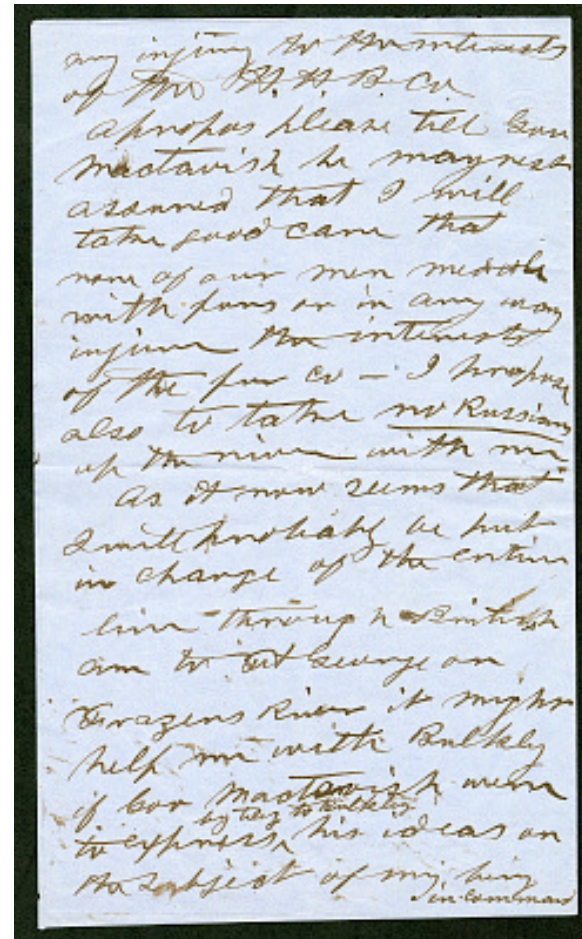 any injury to the interests
of the H. H. B. Co
apropos please tell Gov
Mactavish he may rest
assured that I will
take good care that
none of our men meddle
with furs or in any way
injure the interests
of the fur Co — I propose
also to take no Russians
up the river with me
As it now seems that
I will probably be put
in charge of the entire
line through British
am to Ft George on
Frazers River it might
help me with Bulkly
if Gov Mactavish were
by letg to Bulkly
to express his ideas on
the subject of my being
in command